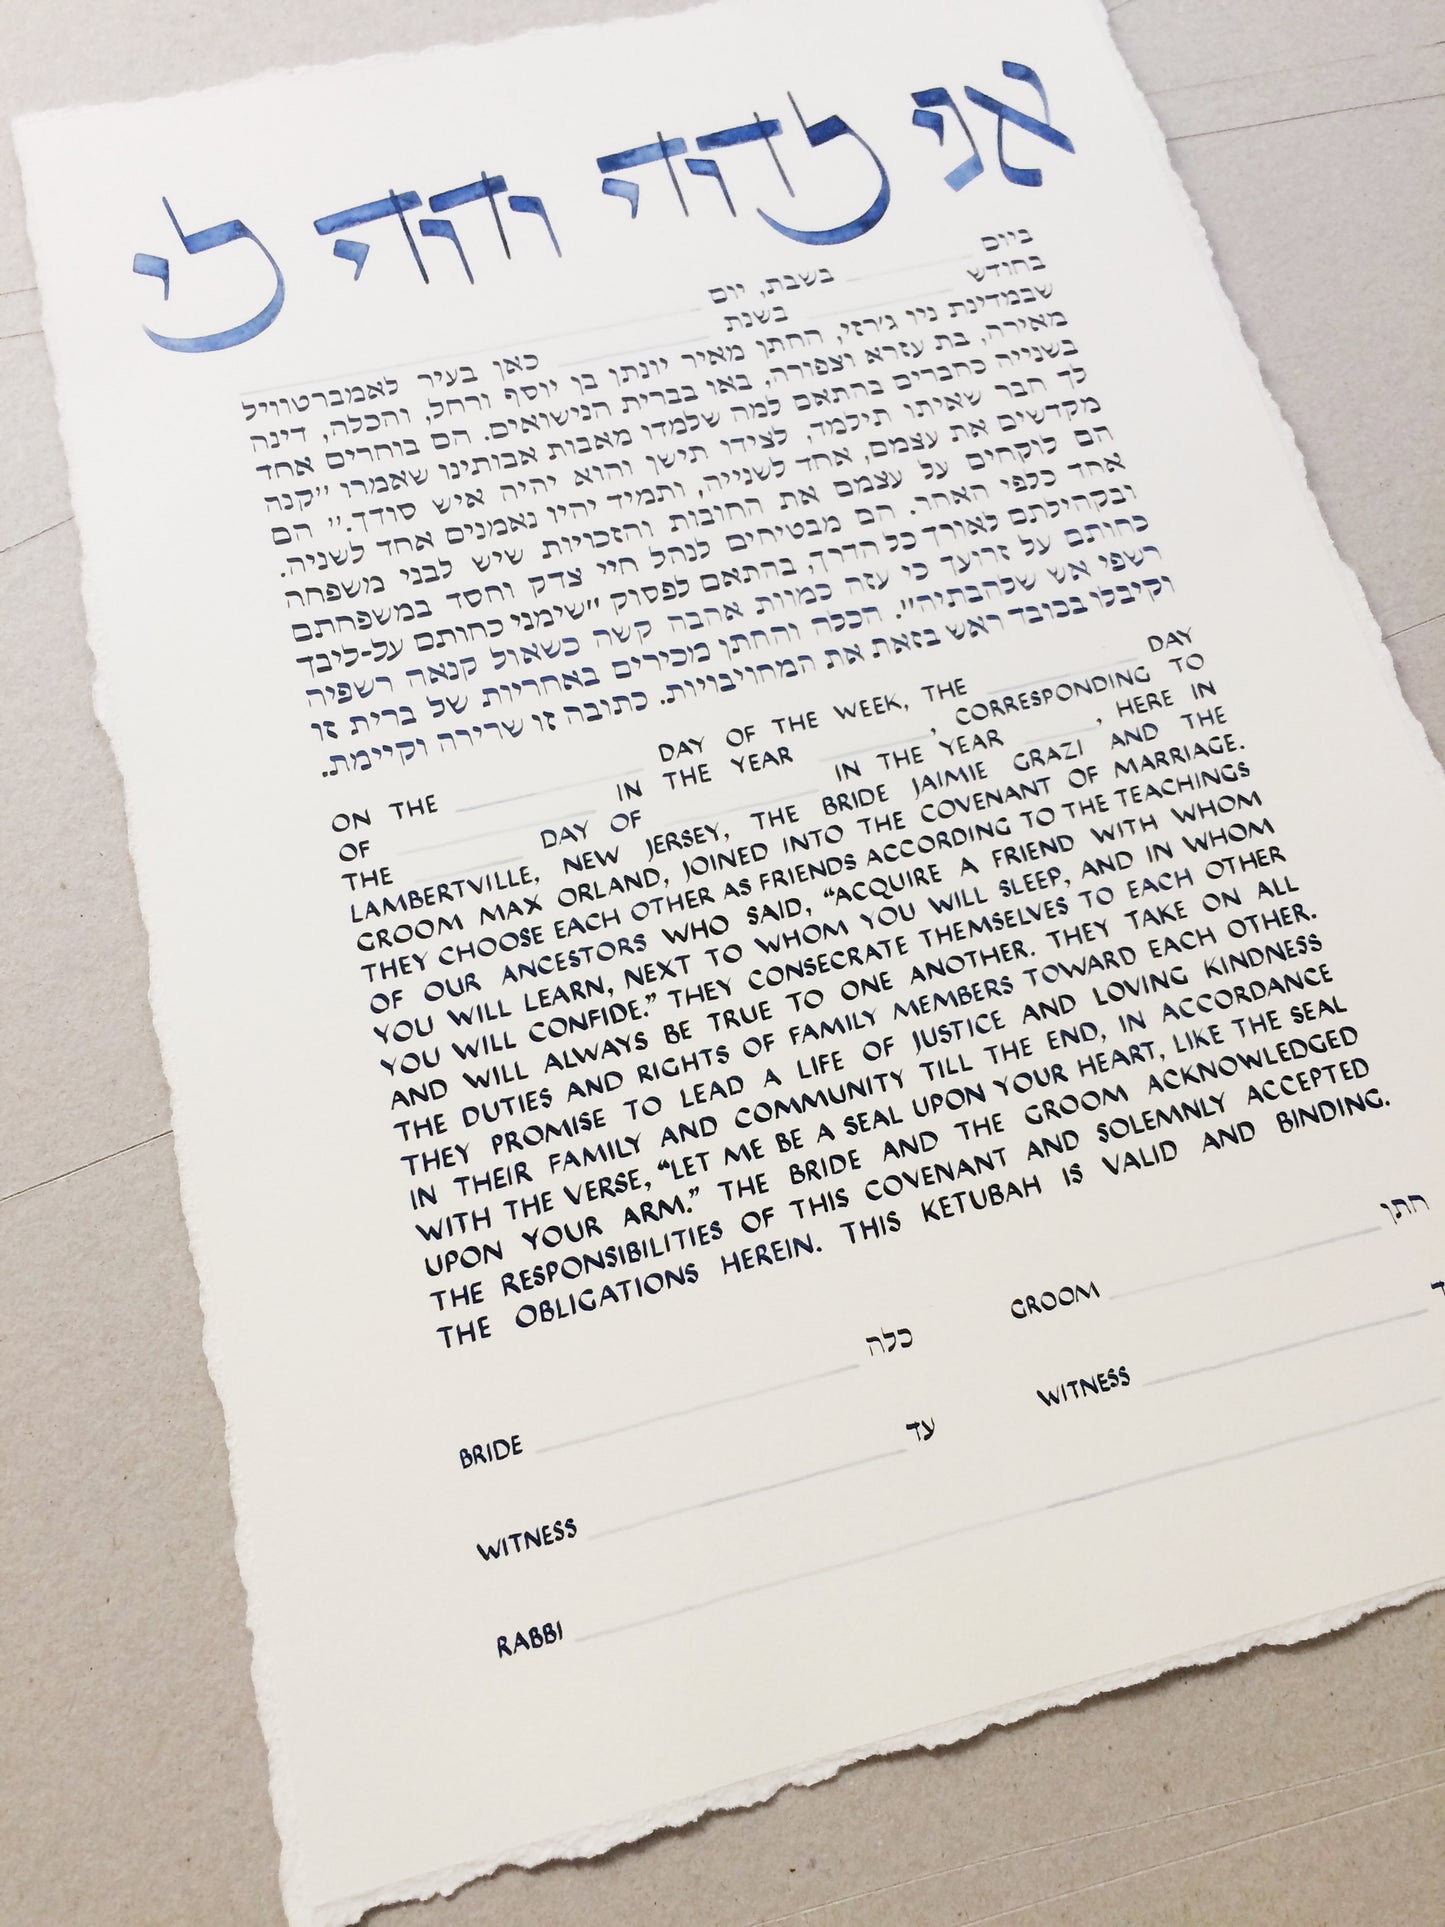 אני לדודי ודודי לי
ביום ____ בשבת, יום ____
בחודש ____ בשנת ____ כאן בעיר לאמברטוויל
שבמדינת ניו ג'רזי, החתן מאיר יונתן בן יוסף ורחל, והכלה, דינה
מאירה, בת עזרא וצפורה, באו בברית הנישואים. הם בוחרים אחד
בשנייה כחברים בהתאם למה שלמדו מאבות אבותינו שאמרו "קנה
לך חבר שאיתו תילמד, לצידו תישן והוא יהיה איש סודך." הם
מקדשים את עצמם, אחד לשנייה, ותמיד יהיו נאמנים אחד לשניה.
הם לוקחים על עצמם את החובות והזכויות שיש לבני משפחה
אחד כלפי האחר. הם מבטיחים לנהל חיי צדק וחסד במשפחתם
ובקהילתם לאורך כל הדרך, בהתאם לפסוק "שימני כחותם על-ליבך
כחותם על זרועך כי עזה כמוות אהבה קשה כשאול קנאה רשפיה
רשפי אש שלהבתיה". הכלה והחתן מכירים באחריות של ברית זו
וקיבלו בכובד ראש בזאת את המחויבויות. כתובה זו שרירה וקיימת.
ON THE ____ DAY OF THE WEEK, THE ____ DAY
OF ____ IN THE YEAR ____, CORRESPONDING TO
THE ____ DAY OF ____ IN THE YEAR ____, HERE IN
LAMBERTVILLE, NEW JERSEY, THE BRIDE JAIMIE GRAZI AND THE
GROOM MAX ORLAND, JOINED INTO THE COVENANT OF MARRIAGE.
THEY CHOOSE EACH OTHER AS FRIENDS ACCORDING TO THE TEACHINGS
OF OUR ANCESTORS WHO SAID, “ACQUIRE A FRIEND WITH WHOM
YOU WILL LEARN, NEXT TO WHOM YOU WILL SLEEP, AND IN WHOM
YOU WILL CONFIDE.” THEY CONSECRATE THEMSELVES TO EACH OTHER
AND WILL ALWAYS BE TRUE TO ONE ANOTHER. THEY TAKE ON ALL
THE DUTIES AND RIGHTS OF FAMILY MEMBERS TOWARD EACH OTHER.
THEY PROMISE TO LEAD A LIFE OF JUSTICE AND LOVING KINDNESS
IN THEIR FAMILY AND COMMUNITY TILL THE END, IN ACCORDANCE
WITH THE VERSE, “LET ME BE A SEAL UPON YOUR HEART, LIKE THE SEAL
UPON YOUR ARM.” THE BRIDE AND THE GROOM ACKNOWLEDGED
THE RESPONSIBILITIES OF THIS COVENANT AND SOLEMNLY ACCEPTED
THE OBLIGATIONS HEREIN. THIS KETUBAH IS VALID AND BINDING.
BRIDE ____ כלה
GROOM ____ חתן
WITNESS ____ עד
WITNESS ____
RABBI ____